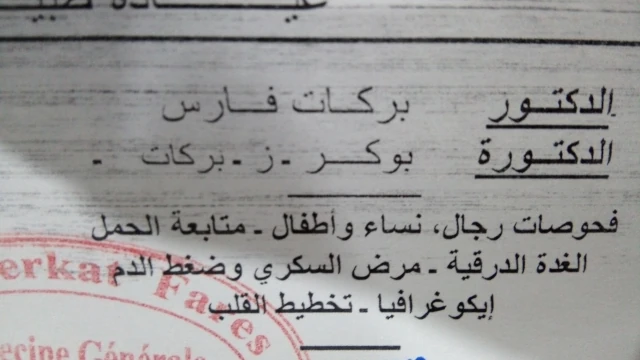 عيادة طبية
الدكتور بركات فارس
الدكتورة بوكر - ز - بركات -
فحوصات رجال، نساء وأطفال - متابعة الحمل
الغدة الدرقية - مرض السكري وضغط الدم
إيكوغرافيا - تخطيط القلب
erkat Fares
ecine Générale